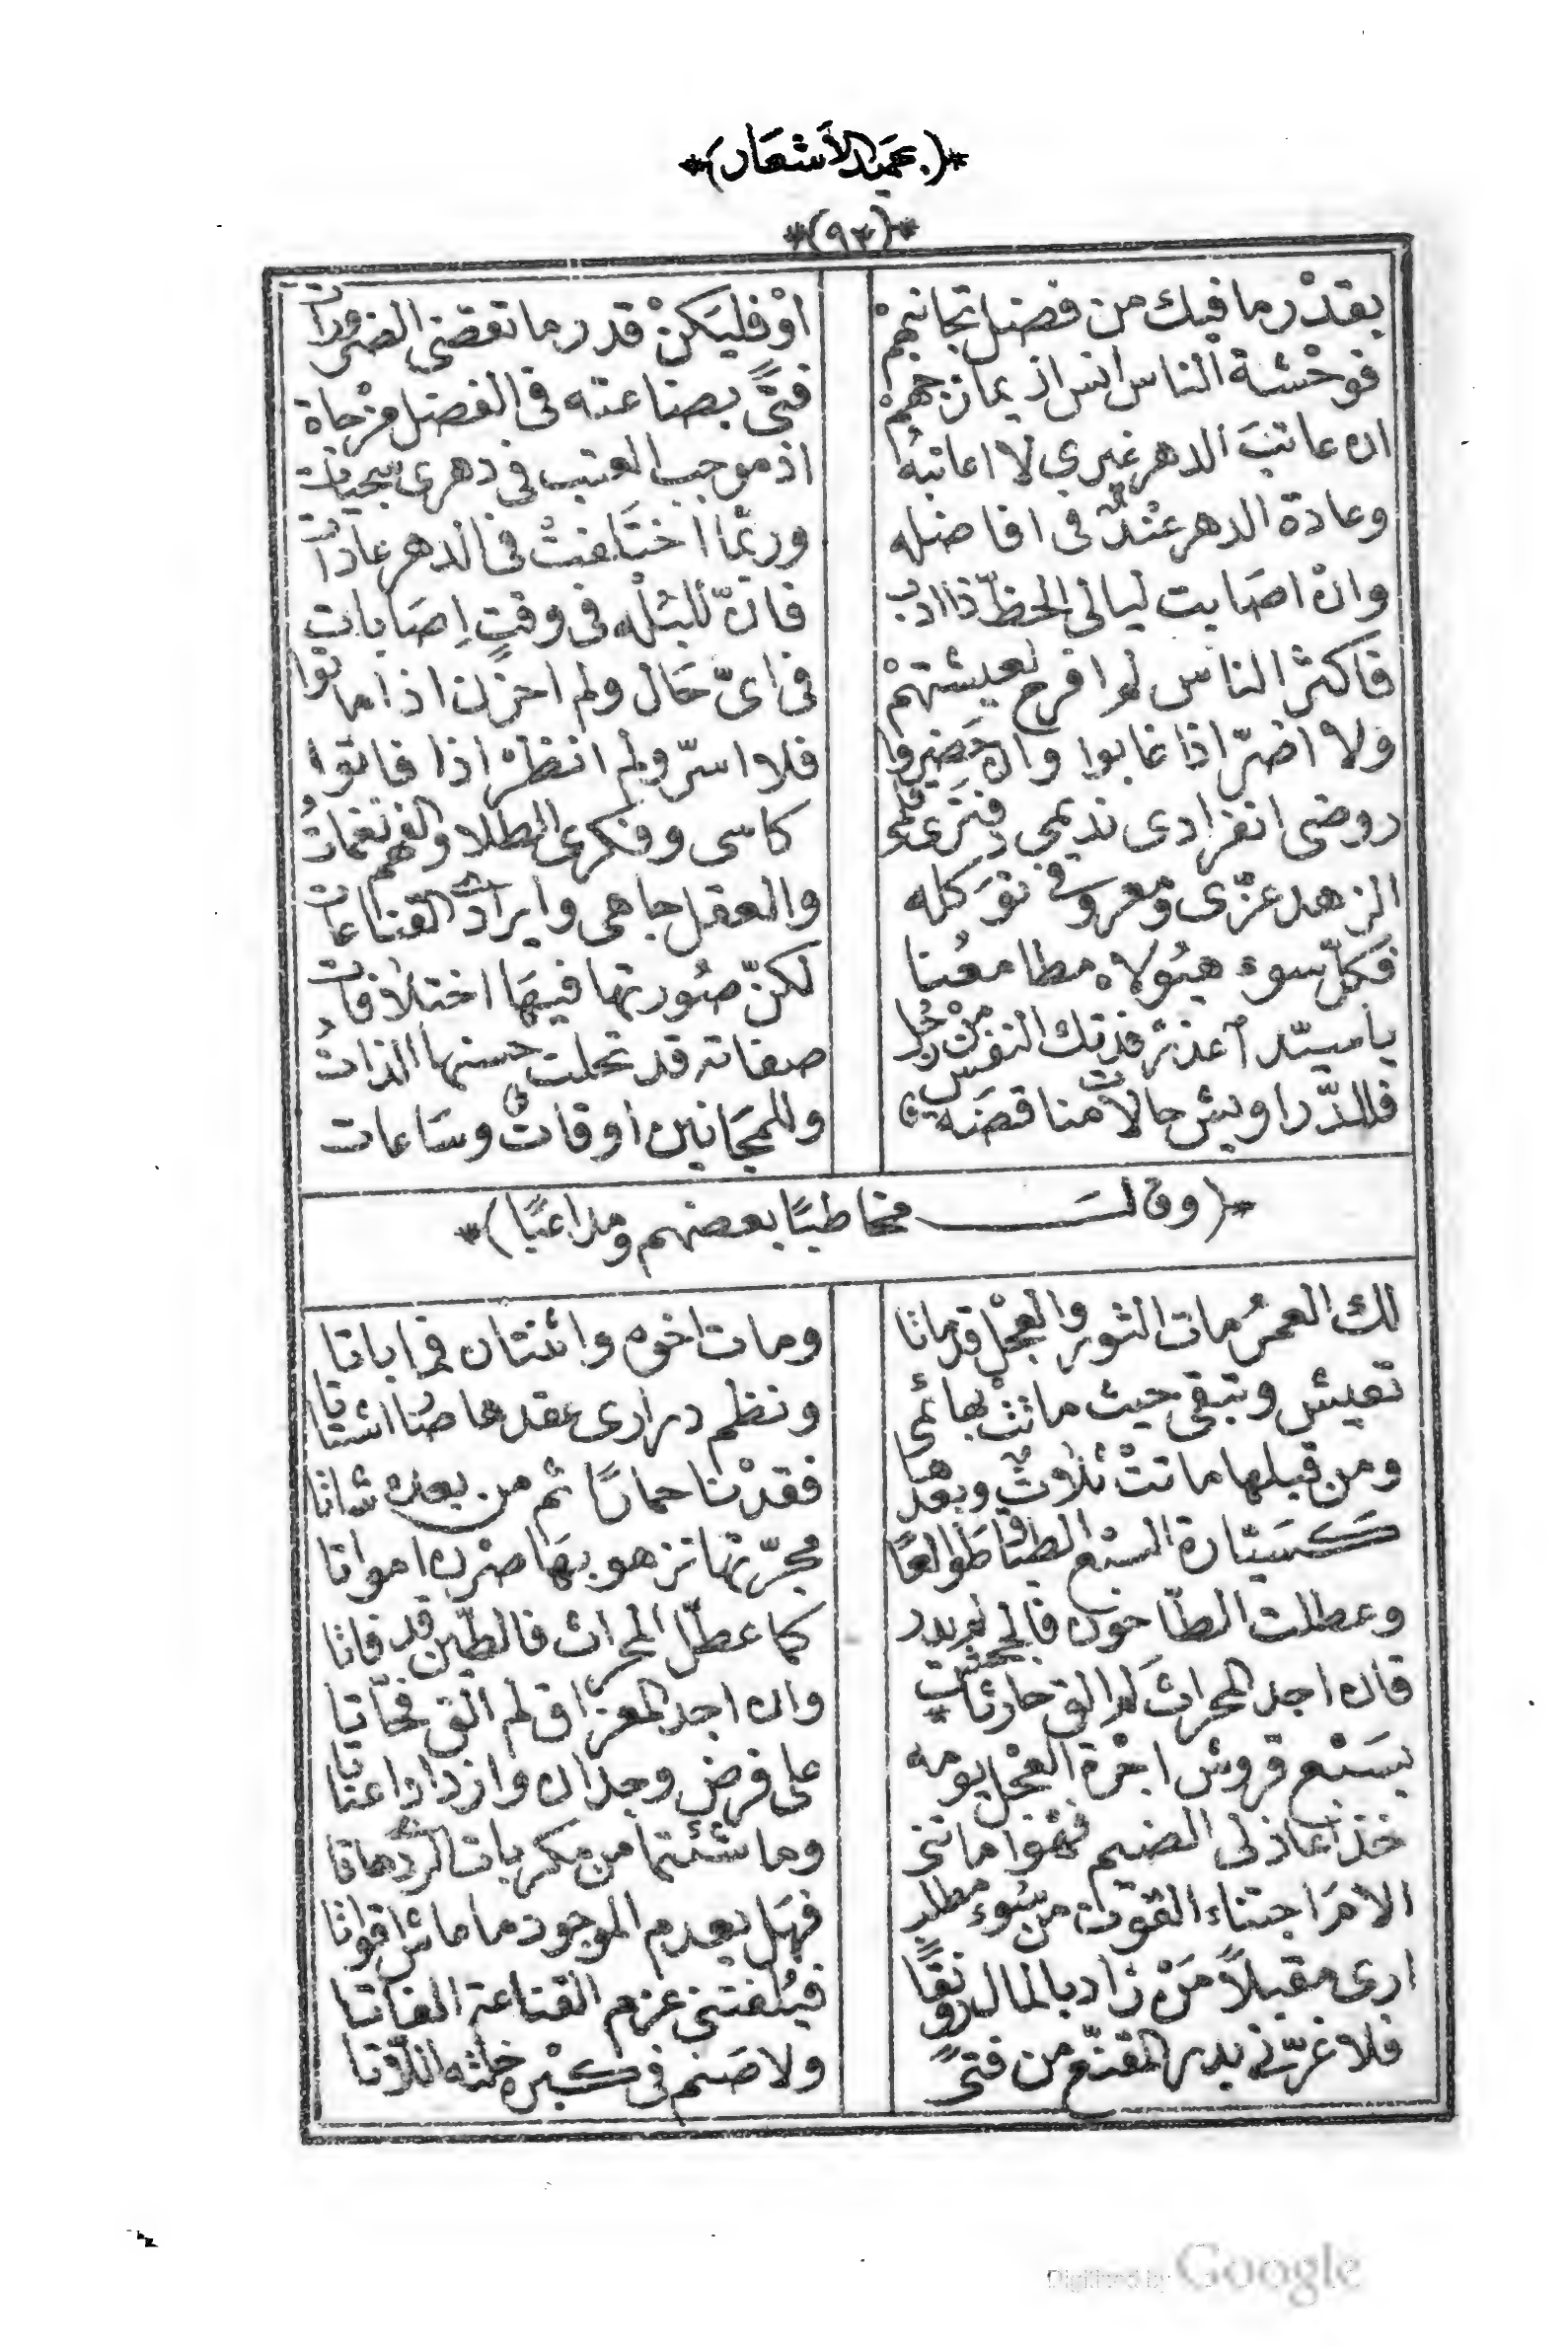 *(عميد الأشعار)*
*(٩٣)*
بقدْر ما فيك من فضل تجانبهمْ اوْ فليَكنْ قدر ما تقضي الضرورات
فوحْشة الناس انس اذ يمازجهمْ فتًى بضاعته في الفضل مزْجاة
ان عاتبَ الدهر غيري لا اعاتبهُ اذ موجب العتب في دهري سجيات
وعادة الدهر عنْدٌ في افاضله وربّما اختَلفتْ في الدهر عاداتٌ
وانْ اصَابت ليالي الحظّ ذا ادب فانّ للبُلْه في وقتٍ اِصَابات
فاكثر الناس لم افرح لعيشتهمْ في ايّ حَال ولم احزن اذا ماتوا
ولا اضرّ اذا غابوا وان حَضروا فلا اسرّ ولم انظرْ اذا فاتوا
روضي انفرادي نديمي دفتري قلمي كاسي وفكري الطلا والفهم نغماتُ
الزهد عزّى ومعروفي توَكله والعقل جاهي وايرادي القناعات
فكلّ سوء هيُولاه مطامعُنا لكنّ صُورتها فيهَا اختلافات
يا سيّد اعذرْ فدتك النفس منْ رجُل صفاته قد تحلت حسنها الذاتُ
فللدّراويش حالاتٌ مناقضَة وللمجَانين اوقاتٌ وسَاعات
*(وقالَ مخاطبًا بعضهم ومداعبًا)*
لك العمرُ مات الثور والعجْل قد ماتا ومات اخوه واثنتان فما باتا
تعيش وتبقى حيث ماتتْ بهائمي ونظم دراري عقدها صَار اشتاتا
ومن قبلها ماتتْ ثلاثٌ وبعْدها فقدْنا حمارًا ثم من بعده شاتا
كسَيّارة السبْع الطباق طَوالعًا مجرّتها تزهو بهَا صرْن امواتا
وعطلت الطاحون فالجحش لم يدر كما عطّل المحراث فالطّين قد فاتا
فان اجد المحراثَ لم الق حارثًا وان اجد المعزاق لم الق فحَّاتا
بسَبْع قروش اجْرة العجْل يومه على فرض وجدان وازداد اعناتا
خذا عاذلى الضيم فهْوا ماتنى وما شئتما من مكربات الردّ هاتا
الامَ اجتناء القوْت من سُوء مطلب فهَل يعدم الموجود ما ماش اقواتا
ارى مقبلاً مَنْ زاد بالمال رونقًا فيُلفتني عزم القناعة الفاتا
فلا غرّني بدر المقنّع من فتًى ولا صَنم في كبْره خلته اللّاتا
Digitized by Google